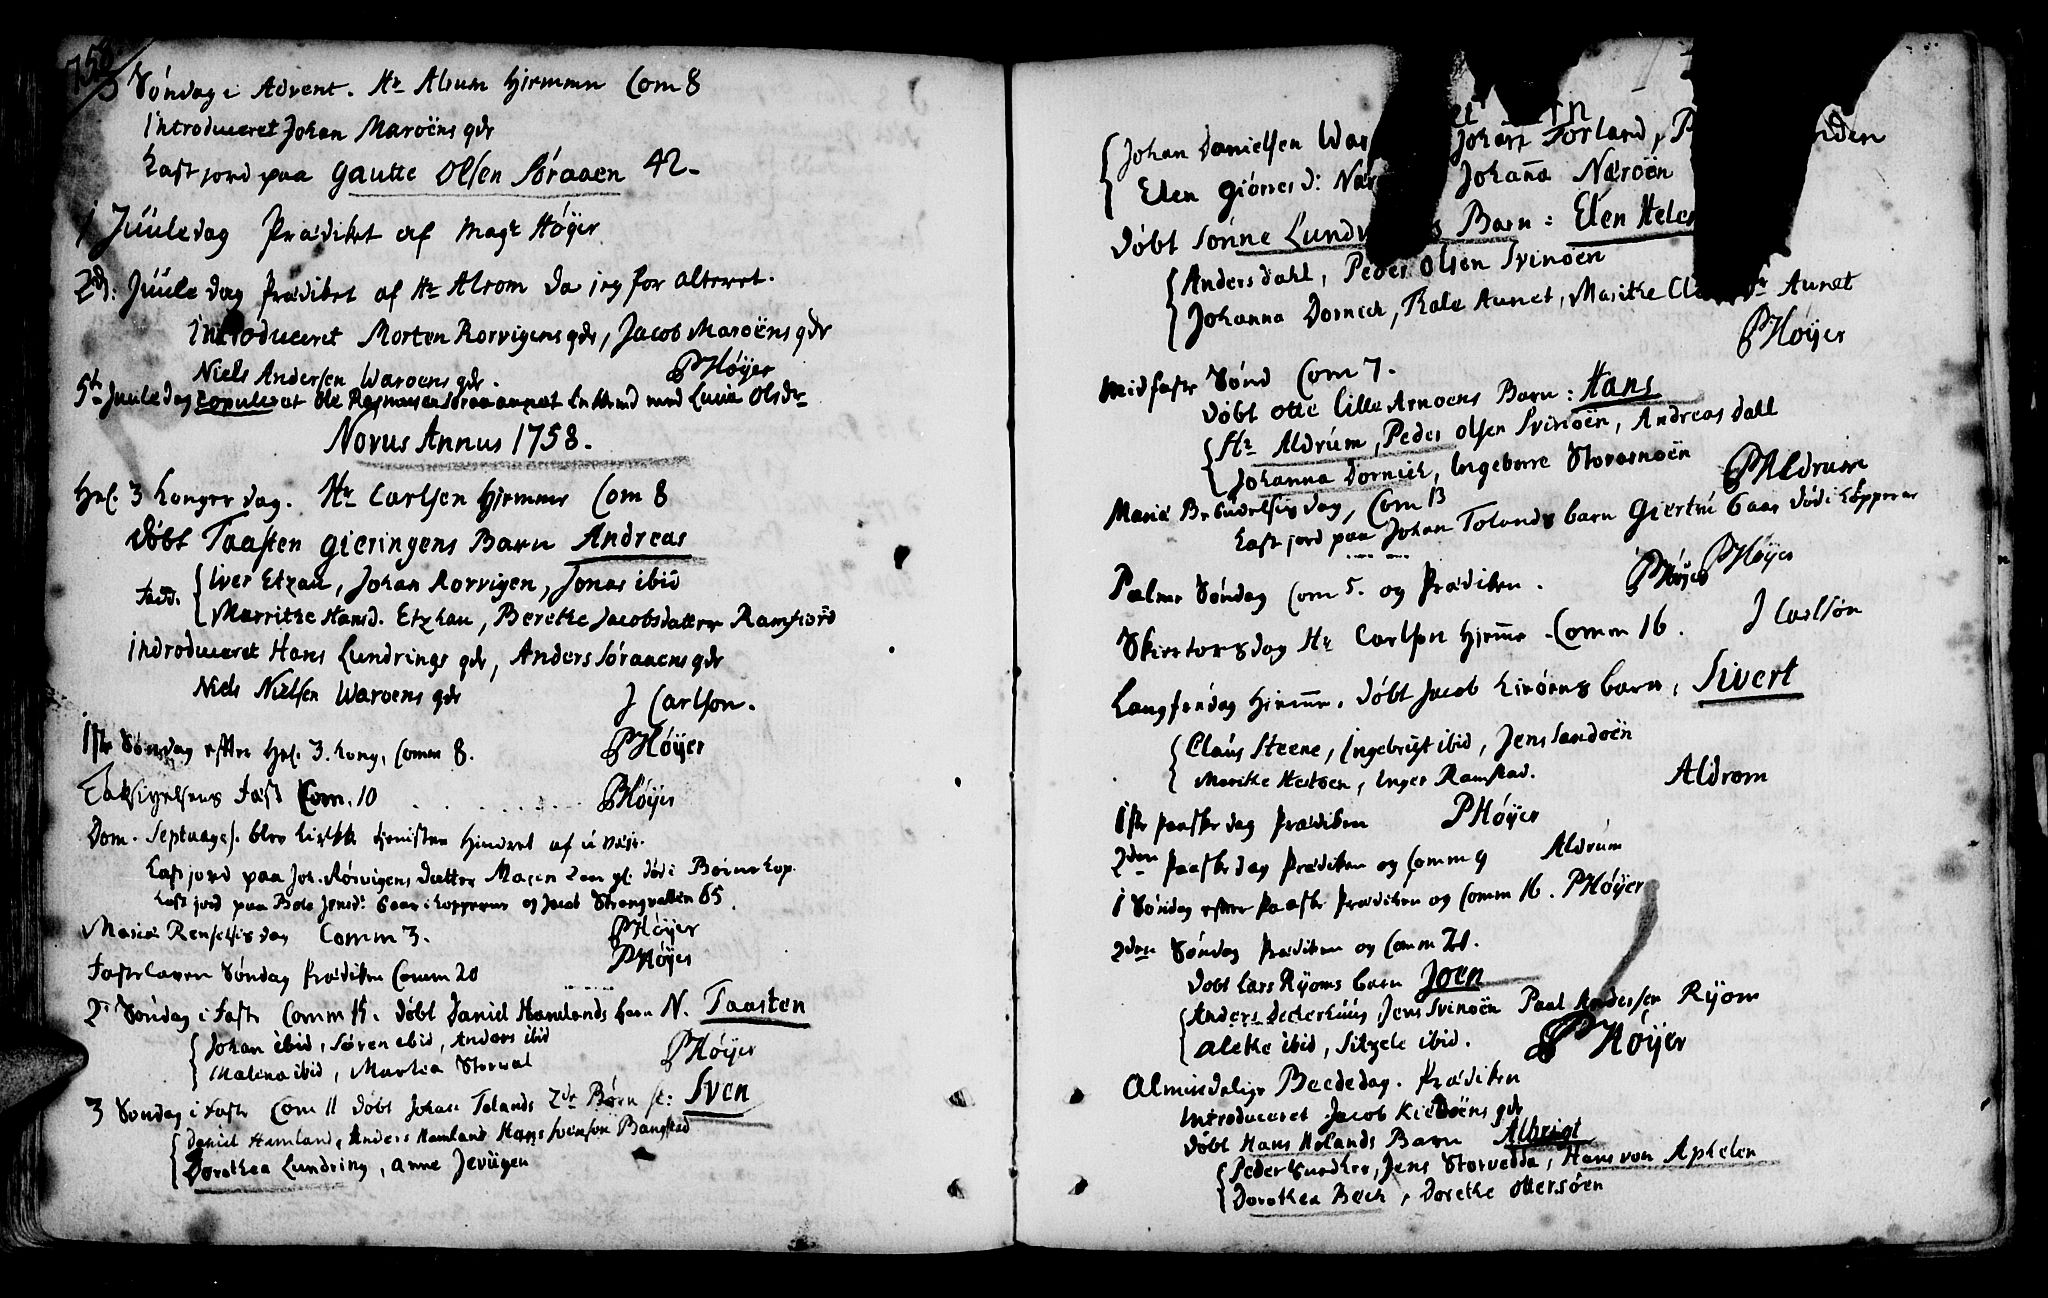 1758
3 Søndag i Advent. Hr Alrum hiemme Com 8
Introduceret Johan Maroëns qdr
Kast jord paa Gautte Olsen Søraaen 42-
1 Juuledag Prædiket af Magr Høyer
2d: Juule dag Prædiket af Hr Alrom da jeg for alteret.
Introduceret Morten Rorvigens qdr, Jacob Maroëns qdr
Niels Andersen Waroens qdr. PHøyer
5te Juuledag Copuleret Ole Rasmusen Søraaunet Enkemd med Lucia Olsdr
Novus Annus 1758.
Hel. 3 Konger dag. Hr Carlsen hjemme Com 8
Døbt Taasten Gieringens Barn Andreas
Fadd. Iver Etzau, Johan Rorvigen, Jonas ibid
Marrithe Hansd. Etzhau, Berethe Jacobsdatter Ramfiord
Indroduceret Hans Lundrings qdr, Anders Søraaens qdr
Niels Nielsen Waroens qdr J Carlson.
1ste Søndag efter Hel. 3. Kong, Comm 8. PHøyer
Taksigelsens Fæst Com. 10 PHøyer
Dom. Septuages. blev Kirke tienisten hindret af u veir.
Kast jord paa Joh. Rørvigens datter Maren 2 aar gl. død i Børne kop.
Kast jord paa Bole Jensd. 6 aar i Kopperne og Jacob Strengvatten 65.
Mariæ Renselsis dag Comm 3. PHøyer
Fastelaven Søndag Prædiken Comm 20 PHøyer
2. Søndag i Faste Comm 15. døbt Daniel Hamlands barn N. Taasten
Johan ibid, Søren ibid, Anders ibid
Malena ibid, Marlea Storwal PHøyer
3 Søndag i Faste Com 11 døbt Johan Tolands 2de Børn Sl: Sven
Daniel Hamland, Anders Hamland Hans Svensøn Bangstad
Dorothea Lundring, Anne Jevügen
Johan Danielsen War Johan Torland, P den
Elen Giørres d: Nær Johana Nærøen
Døbt Sønne Lund Barn: Elen Hele
Anders dahl, Peder Olsen Svinøen
Johanna Dornich, Thale Aunet, Marithe Cl Aunet
PHøyer
Midfaste Sønd Com 7.
Døbt Otte Lille Arnoens Barn: Hans
Hr Aldrúm, Peder Olsen Svinoën, Andreas dall
Johanna Dornich, Ingeborre Storarnoën PAldrum
Mariæ Bebudelsis dag, Com 13
Kast jord paa Johan Tolands barn Giertrú 6 aar død i Kopperne
Palme Søndag Com 5. og Prædiken. PHøyer PHøyer
Skiertorsdag Hr Carlsøn hjeme Comm 16. J Carlsøn
Langfredag hieme. Døbt Jacob Kirøens barn, Sivert
Claús Steene, Ingebrigt ibid, Jens Sandoën
Marithe Hestøen, Inger Ramstad. Aldrom
1ste Paaske dag Prædiken PHøyer
2den Paaske dag Prædiken og Comm 9 Aldrúm
1 Søndag efter Paaske Prædiken og Comm 16. PHøyer
2den Søndag Prædiken og Comm 21.
Døbt Lars Ryoms barn Joen
Anders Dekerhuus Jens Svinoën Paal Andersen Ryom
Alethe ibid, Sitzele ibid. PHøyer
Almindelige Beededag. Prædiken
Introduceret Jacob Kiedøens qdr
Døbt Hans Holands Barn Albrigt
Peder Gundher, Jens Storvedda, Hans von Aphelen
Dorothea Bech, Dorethe Ottersøen